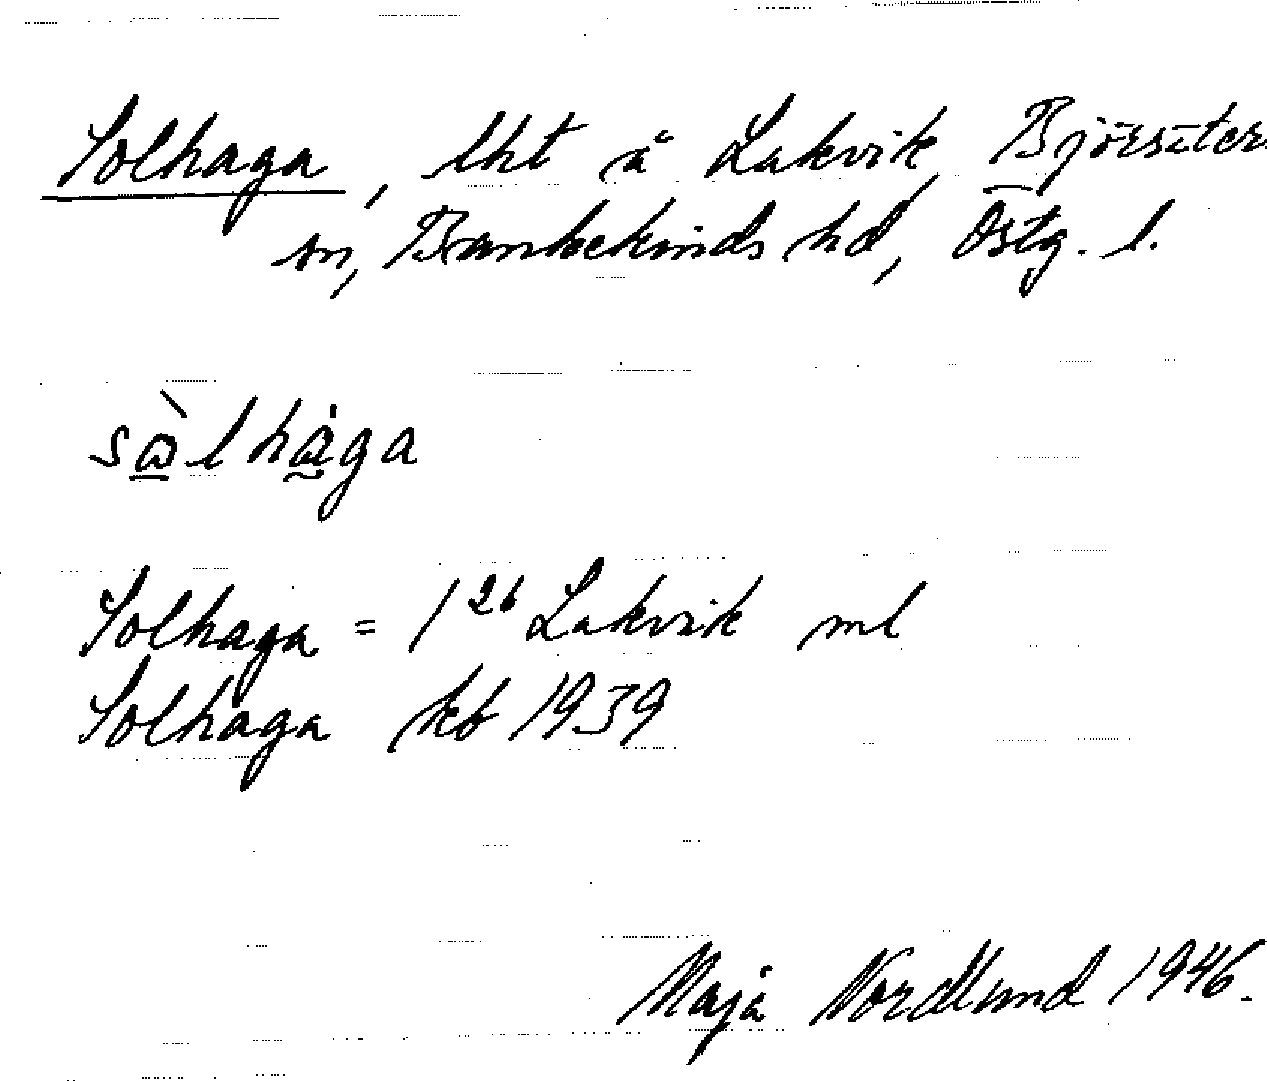 Solhaga, lht å Lakvik, Björsäter
sn, Bankekinds hd, Östg. l.
sòlhaga
Solhaga = 1²⁶ Lakvik ml
Solhaga kb 1939
Maja Nordlund 1946.